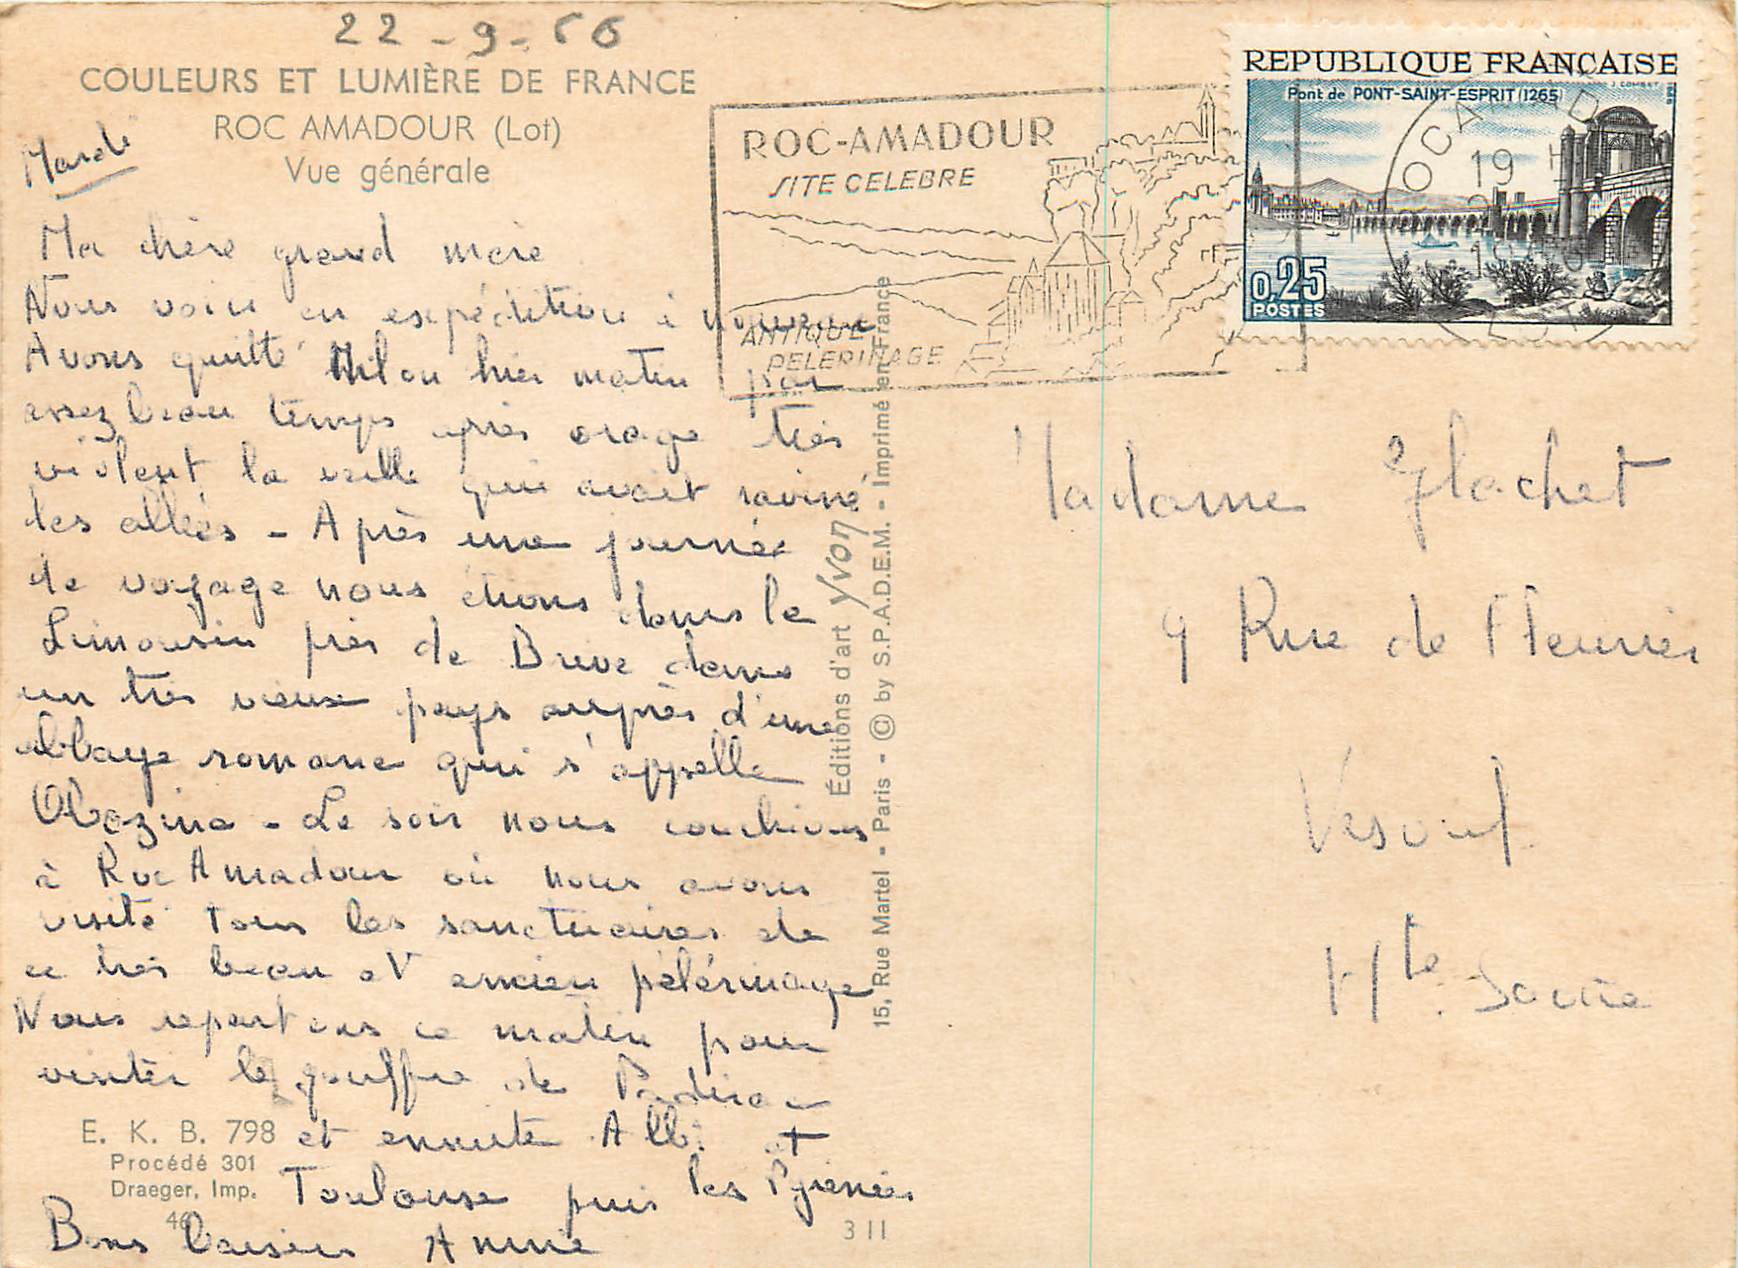 22-9-66
COULEURS ET LUMIÈRE DE FRANCE
ROC AMADOUR (Lot)
Vue générale
Mardi
Ma chère grand mère
Nous voici en expédition à nouveau
Avons quitté Milou hier matin par
assez beau temps après orage très
violent la veille qui avait raviné
les allées - Après une journée
de voyage nous étions dans le
Limousin près de Brive dans
un très vieux pays auprès d'une
abbaye romane qui s'appelle
Obazine - Le soir nous couchions
à Roc Amadour où nous avons
visité tous les sanctuaires de
ce très beau et ancien pélérinage
Nous repartons ce matin pour
visiter le gouffre de Padirac
et ensuite Albi et
Toulouse puis les Pyrénées
Bons baisers Annie
E. K. B. 798
Procédé 301
Draeger, Imp.
46
311
Éditions d'art Yvon
15, Rue Martel - Paris - © by S.P.A.D.E.M. - Imprimé en France
ROC-AMADOUR
SITE CELEBRE
ANTIQUE
PELERINAGE
REPUBLIQUE FRANÇAISE
Pont de PONT-SAINT-ESPRIT (1265)
0,25
POSTES
19 H
Madame Flachet
9 Rue de Fleurier
Vesoul
Hte Saône